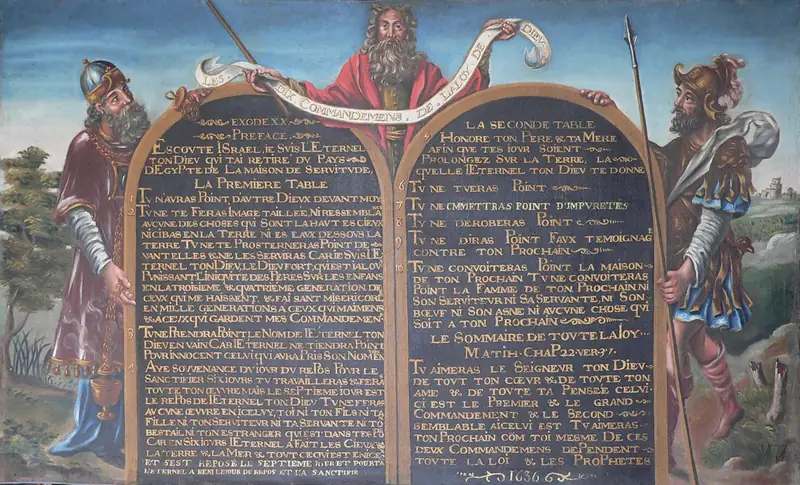 LES DIX COMMANDEMENS DE LA LOY DE DIEV
EXODE XX
PREFACE
ESCOVTE ISRAEL, IE SVIS L'ETERNEL
TON DIEV QVI T'AI RETIRE DV PAYS
D'EGYPTE DE LA MAISON DE SERVITVDE,
LA PREMIERE TABLE
1 TV N'AVRAS POINT D'AVTRE DIEVX DEVANT MOY
2 TV NE TE FERAS IMAGE TAILLEE, NI RESSEMBLA
AVCVNE DES CHOSES QVI SONT LA HAVT ES CIEVX
NI CI BAS EN LA TERRE NI ES EAVX DESSOVS LA
TERRE TV NE TE PROSTERNERAS POINT DE
VANT ELLES & NE LES SERVIRAS CAR IE SVIS L'E
TERNEL TON DIEV, LE DIEV FORT, QVI EST IALOV
PVNISSANT L'INIQVITE DES PERES SVR LES ENFANS
EN LA TROISIEME & QVATRIEME GENERATION DE
CEVX QVI ME HAISSENT, & FAISANT MISERICOR
EN MILLE GENERATIONS A CEVX QVI M'AIMENS
& A CEVX QVI GARDENT MES COMMANDEMEN
3 TV NE PRENDRA POINT LE NOM DE L'ETERNEL TON
DIEV EN VAIN CAR L'ETERNEL NE TIENDRA POINT
POVR INNOCENT CELVI QVI AVRA PRIS SON NOM EN
4 AYE SOVVENANCE DV IOVR DV REPOS POVR LE
SANCTIFIER SIX IOVRS TV TRAVAILLERAS & FERA
TOVTE TON ŒVVRE MAIS LE SEPTIEME IOVR EST
LE REPOS DE L'ETERNEL TON DIEV TV NE FERAS
AVCVNE ŒVVRE EN ICELVY, TOI NI TON FILS NI TA
FILLE NI TON SERVITEVR NI TA SERVANTE NI TO
BESTAIL NI TON ESTRANGER QVI EST DANS TES PO
CAR EN SIX IOVRS L'ETERNEL A FAIT LES CIEVX &
LA TERRE & LA MER & TOVT CE QVI EST EN ICE
ET S'EST REPOSE LE SEPTIEME IOVR ET POVRTA
L'ETERNEL A BENI LE IOVR DE REPOS ET L'A SANCTIFIE
LA SECONDE TABLE
5 HONORE TON PERE & TA MERE
AFIN QVE TES IOVR SOIENT
PROLONGEZ SVR LA TERRE, LA
QVELLE L'ETERNEL TON DIEV TE DONNE
6 TV NE TVERAS POINT
7 TV NE COMMETTRAS POINT D'IMPVRETES
8 TV NE DEROBERAS POINT
9 TV NE DIRAS POINT FAVX TEMOIGNAGE
CONTRE TON PROCHAIN
10 TV NE CONVOITERAS POINT LA MAISON
DE TON PROCHAIN TV NE CONVOITERAS
POINT LA FAMME DE TON PROCHAIN NI
SON SERVITEVR NI SA SERVANTE, NI SON
BŒVF NI SON ASNE NI AVCVNE CHOSE QVI
SOIT A TON PROCHAIN
LE SOMMAIRE DE TOVTE LA LOY
MATTH. CHAP 22 VER 37
TV AIMERAS LE SEIGNEVR TON DIEV
DE TOVT TON CŒVR & DE TOVTE TON
AME & DE TOVTE TA PENSEE CELVI
CI EST LE PREMIER & LE GRAND
COMMANDEMENT & LE SECOND
SEMBLABLE A ICELVI EST TV AIMERAS
TON PROCHAIN COM TOI MESME DE CES
DEVX COMMANDEMENS DEPENDENT
TOVTE LA LOI & LES PROPHETES
1636